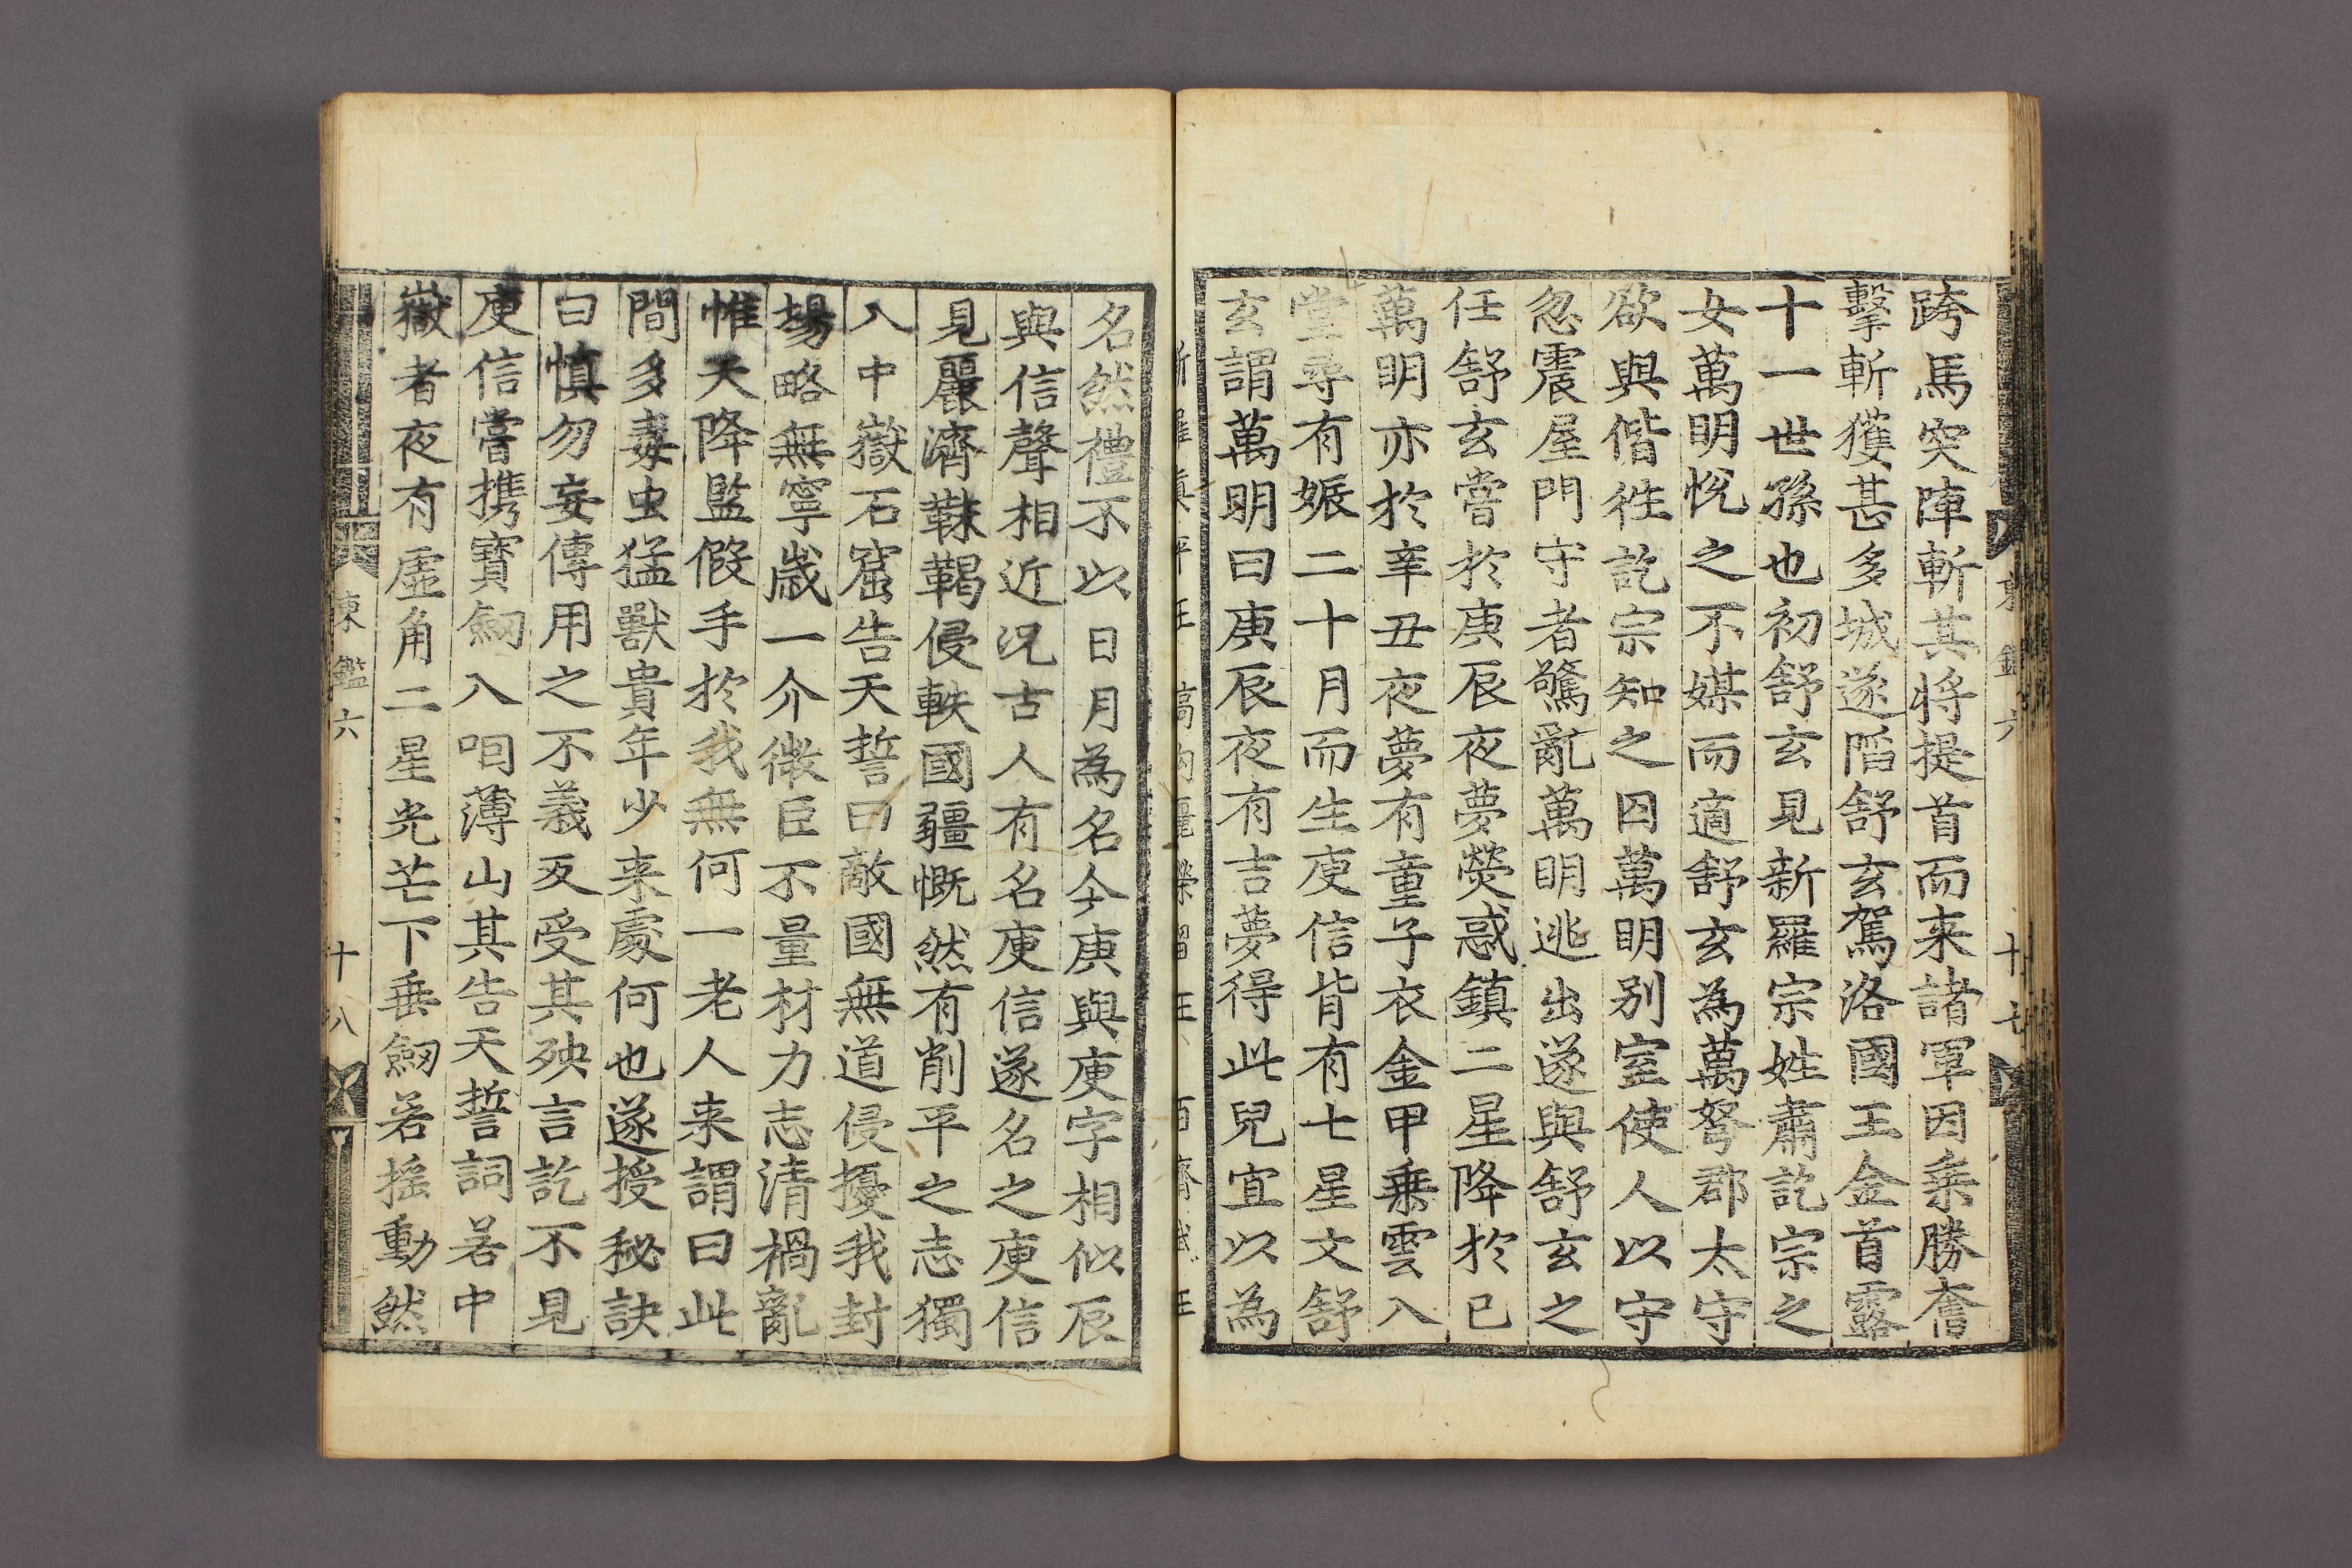 跨馬突陣斬其將提首而来諸軍因乗勝奮
擊斬獲甚多城遂陷舒玄駕洛國王金首露
十一世孫也初舒玄見新羅宗姓肅訖宗之
女萬明恱之不媒而適舒玄為萬弩郡太守
欲與偕徃訖宗知之囚萬明别室使人以守
忽震屋門守者驚亂萬明逃出遂與舒玄之
任舒玄嘗於庚辰夜夢熒惑鎮二星降於己
萬明亦於辛丑夜夢有童子衣金甲乗雲入
堂尋有娠二十月而生庾信背有七星文舒
玄謂萬明曰庚辰夜有吉夢得此兒宜以為
東鑑六 十七
名然禮不以日月為名今庚與庾字相似辰
與信聲相近况古人有名庾信遂名之庾信
見麗濟靺鞨侵軼國疆慨然有削平之志獨
入中嶽石窟告天誓曰敵國無道侵擾我封
場略無寧歲一介微臣不量材力志清禍亂
惟天降監假手於我無何一老人来謂曰此
間多毒虫猛獸貴年少来處何也遂授秘訣
曰慎勿妄傳用之不義反受其殃言訖不見
庾信嘗携寶劒入咽薄山其告天誓詞若中
嶽者夜有虛角二星光芒下垂劒若揺動然
東鑑六 十八